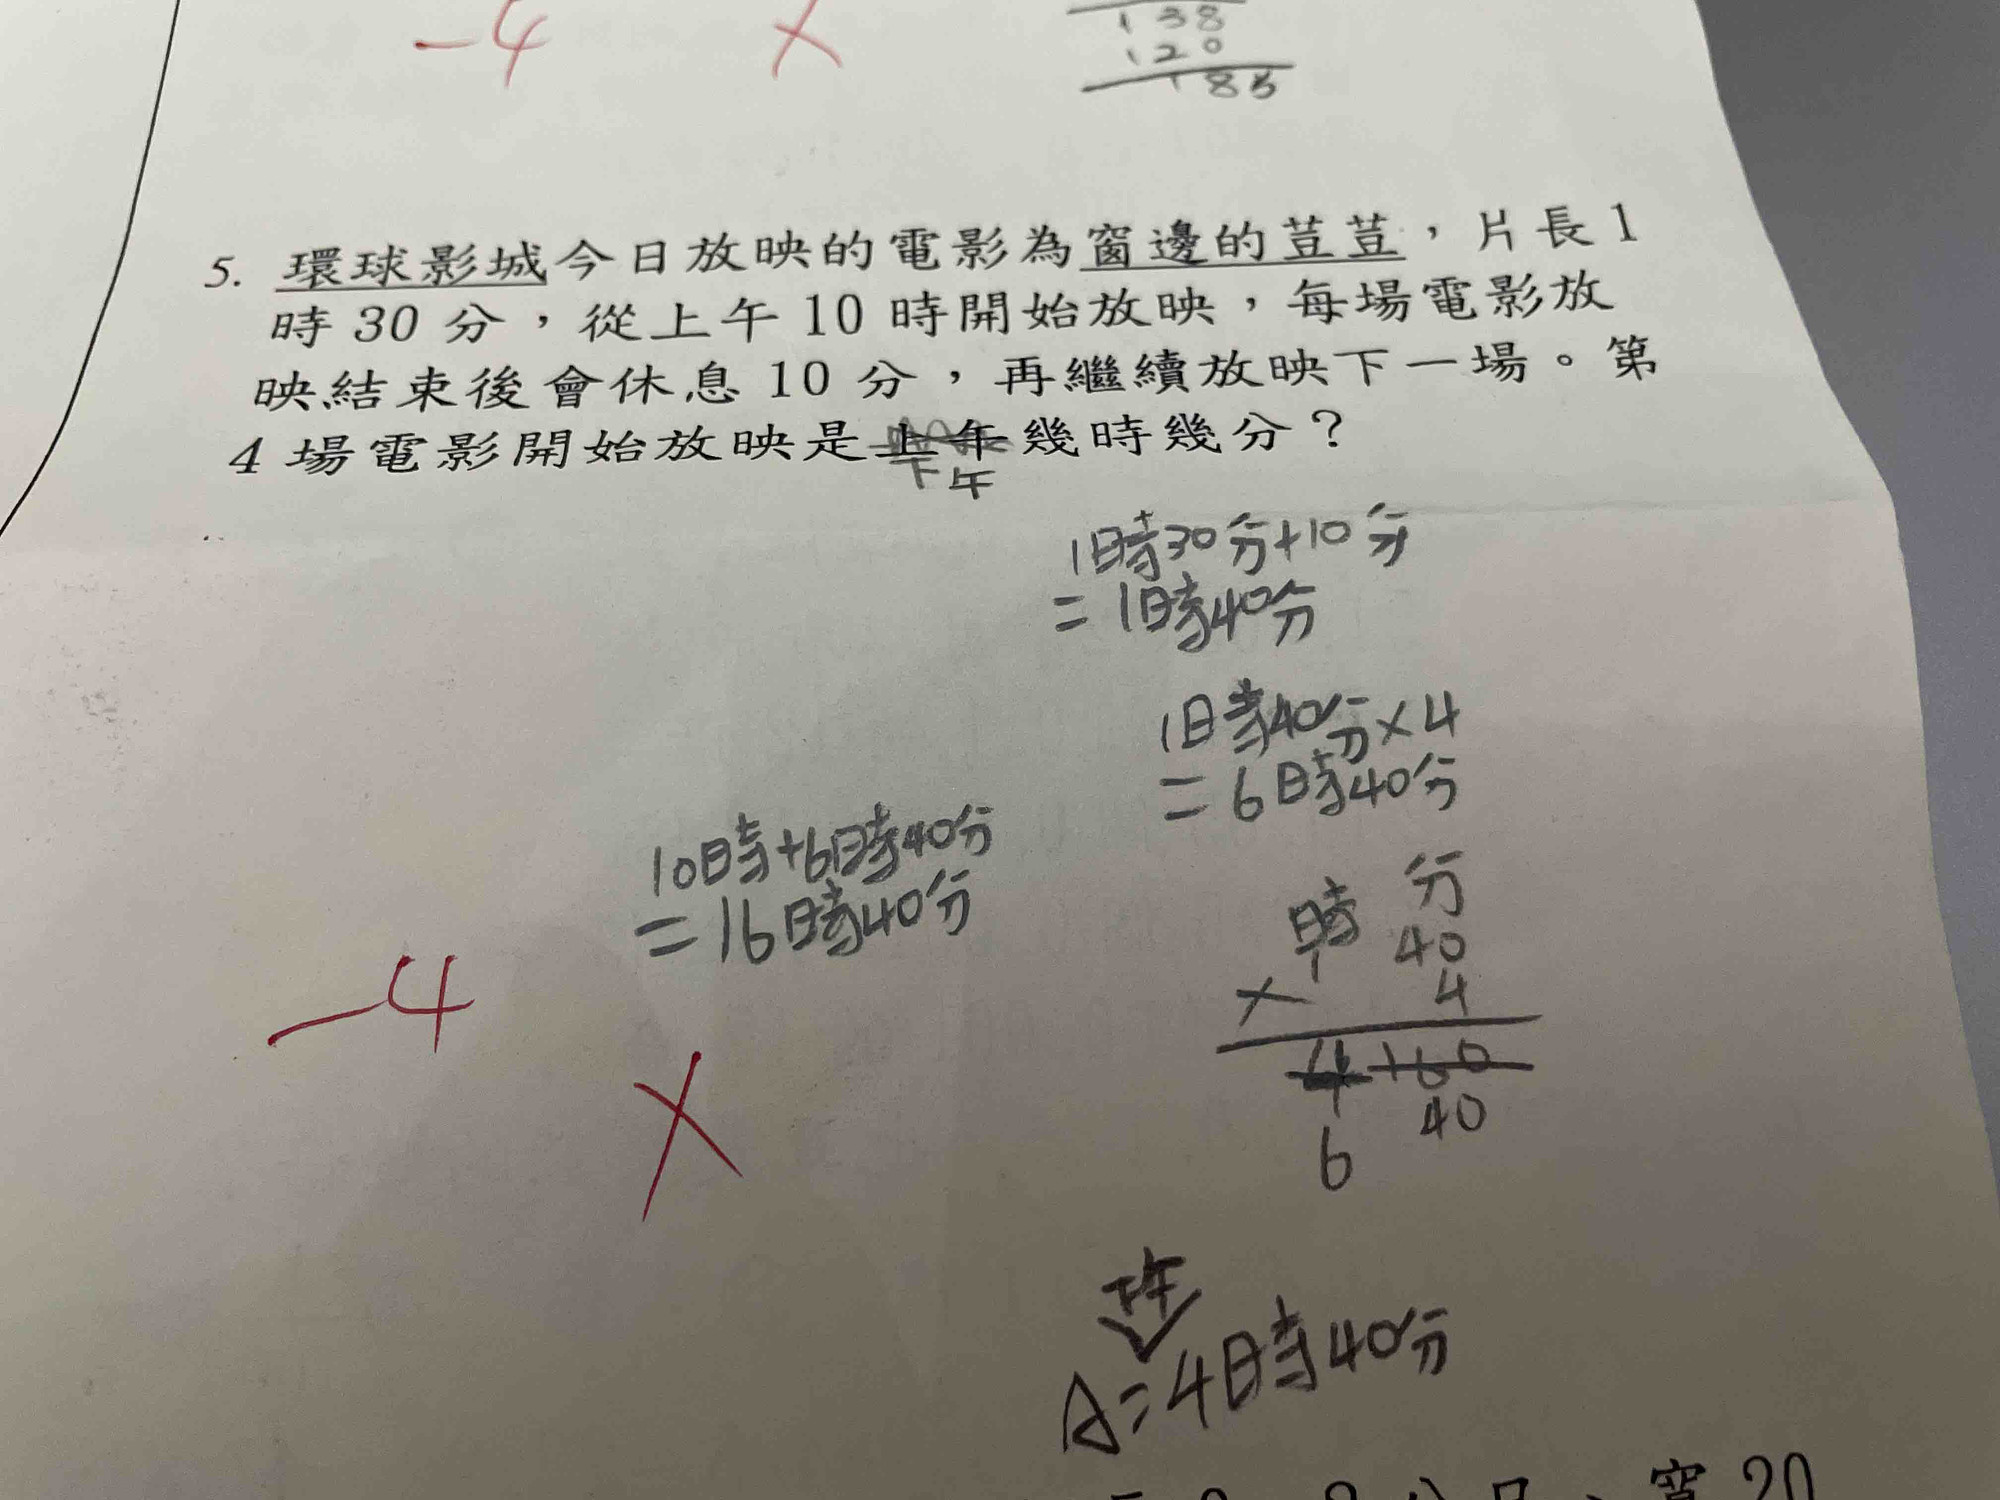 -4 ×
138
120
185
5. 環球影城今日放映的電影為窗邊的荳荳，片長1
時30分，從上午10時開始放映，每場電影放
映結束後會休息10分，再繼續放映下一場。第
4場電影開始放映是上午幾時幾分？
下午
1時30分+10分
=1時40分
1時40分×4
=6時40分
10時+6時40分
=16時40分
時 分
1 40
× 4
4 160
6 40
-4
×
下午
A=4時40分
寬20